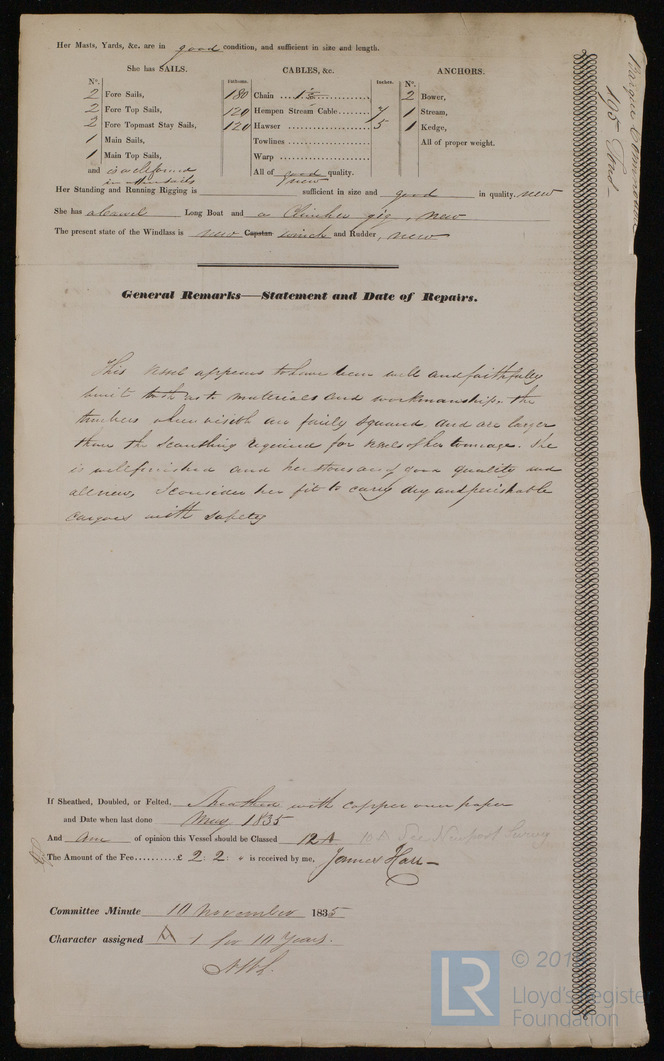 Her Masts, Yards, &c. are in good condition, and sufficient in size and length.
She has SAILS.
CABLES, &c.
ANCHORS.
Nº.
Fathoms.
Inches.
Nº.
2 Fore Sails,
2 Fore Top Sails,
2 Fore Topmast Stay Sails,
1 Main Sails,
1 Main Top Sails,
and is well found
in other sails
180 Chain
120 Hempen Stream Cable 7
120 Hawser 5
Towlines
Warp
All of good quality.
new
2 Bower,
1 Stream,
1 Kedge,
All of proper weight.
Her Standing and Running Rigging is sufficient in size and good in quality. new
She has Long Boat and a Clincher gig, new
The present state of the Windlass is new Capstan winch and Rudder, new
General Remarks—Statement and Date of Repairs.
This vessel appears to have been well and faithfully
built both as to materials and workmanship. the
timbers when visible are fairly squared and are larger
than the scantling required for vessels of her tonnage. She
is well finished and her stores are of good quality and
all new, I consider her fit to carry dry and perishable
cargoes with safety
If Sheathed, Doubled, or Felted, Sheathed with copper over paper
and Date when last done May 1835
And am of opinion this Vessel should be Classed 12 A 10 A See Newport Survey
The Amount of the Fee £ 2: 2: is received by me, James
Committee Minute 10 November 1835
Character assigned A 1 for 10 Years.
Barque
195 Tons
LR
© 201
Lloyd's Register
Foundation